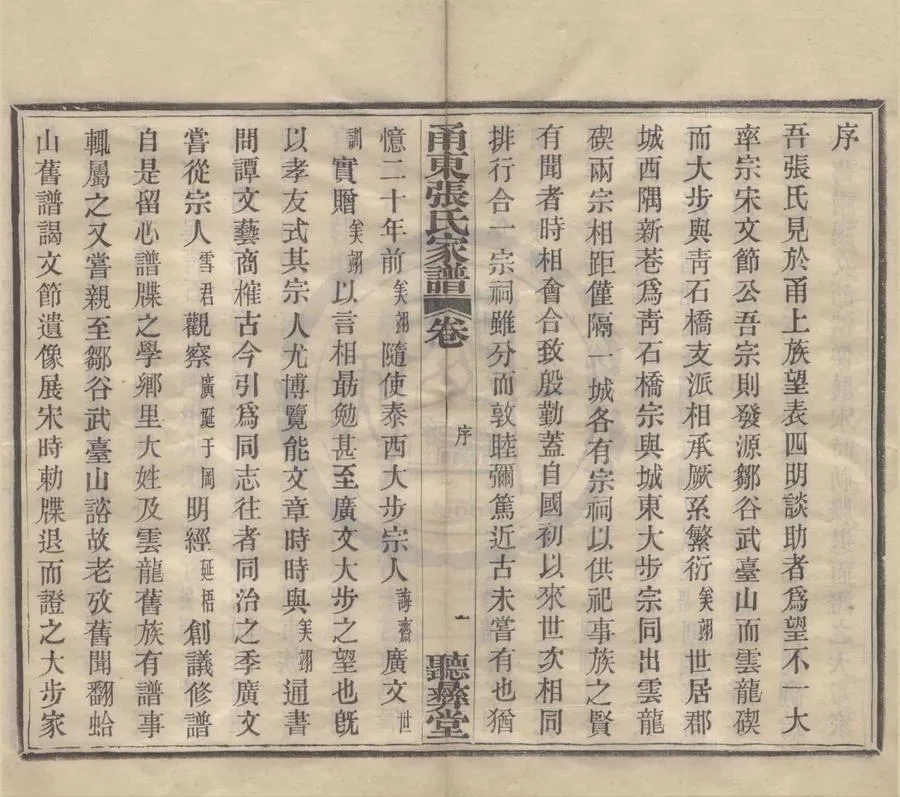 序
吾張氏見於甬上族望表四明談助者爲望不一大
率宗宋文節公吾宗則發源鄒谷武臺山而雲龍碶
而大步與靑石橋支派相承厥系繁衍美翊世居郡
城西隅新巷爲靑石橋宗與城東大步宗同出雲龍
碶兩宗相距僅隔一城各有宗祠以供祀事族之賢
有聞者時相會合致殷勤蓋自國初以來世次相同
排行合一宗祠雖分而敦睦彌篤近古未嘗有也猶
甬東張氏家譜 卷 序 一 聽彝堂
憶二十年前美翊隨使泰西大步宗人譸齋廣文世
訓實贈美翊以言相勗勉甚至廣文大步之望也旣
以孝友式其宗人尤博覽能文章時時與美翊通書
問譚文藝商榷古今引爲同志往者同治之季廣文
嘗從宗人雪君觀察廣埏于岡明經延梧創議修譜
自是留心譜牒之學鄕里大姓及雲龍舊族有譜事
輒屬之又嘗親至鄒谷武臺山諮故老攷舊聞翻蛤
山舊譜謁文節遺像展宋時勅牒退而證之大步家